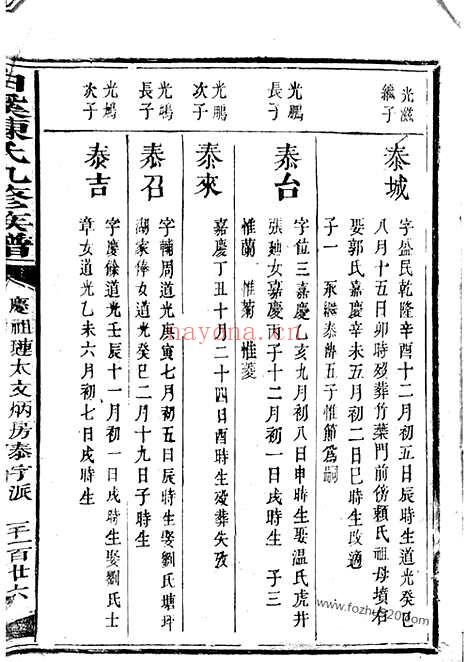 光滋
繼子
泰城
字盛民乾隆辛酉十二月初五日辰時生道光癸巳
八月十五日卯時歿葬竹葉門前傍賴氏祖母墳右
娶郭氏嘉慶辛未五月初二日巳時生改適
子一 永繼泰濤五子惟節爲嗣
光鵬
長子
泰台
字位三嘉慶乙亥九月初八日申時生娶温氏虎井
張廸女嘉慶丙子十二月初一日戌時生 子三
惟蘭 惟菊 惟菱
光鵬
次子
泰來
嘉慶丁丑十月二十四日酉時生歿葬失攷
光鴻
長子
泰召
字輔周道光庚寅七月初五日辰時生娶劉氏塘坪
湖家俸女道光癸巳二月十九日子時生
光鴻
次子
泰吉
字慶餘道光壬辰十一月初一日戌時生娶劉氏士
章女道光乙未六月初七日戌時生
白溪陳氏九修族譜
慶祖璉太支炳房泰字派
百廿六
nayona.cn
www.fozhu920.com